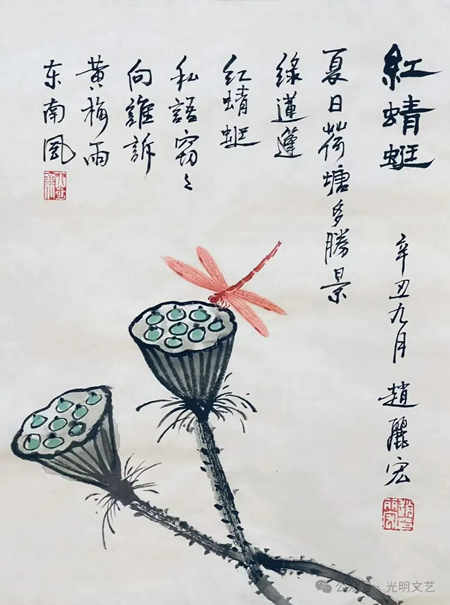 紅蜻蜓
辛丑九月 趙麗宏
夏日荷塘多勝景
緑蓮蓬
红蜻蜓
私語窃々
向誰訴
黄梅雨
东南风
公众号 · 光明文艺